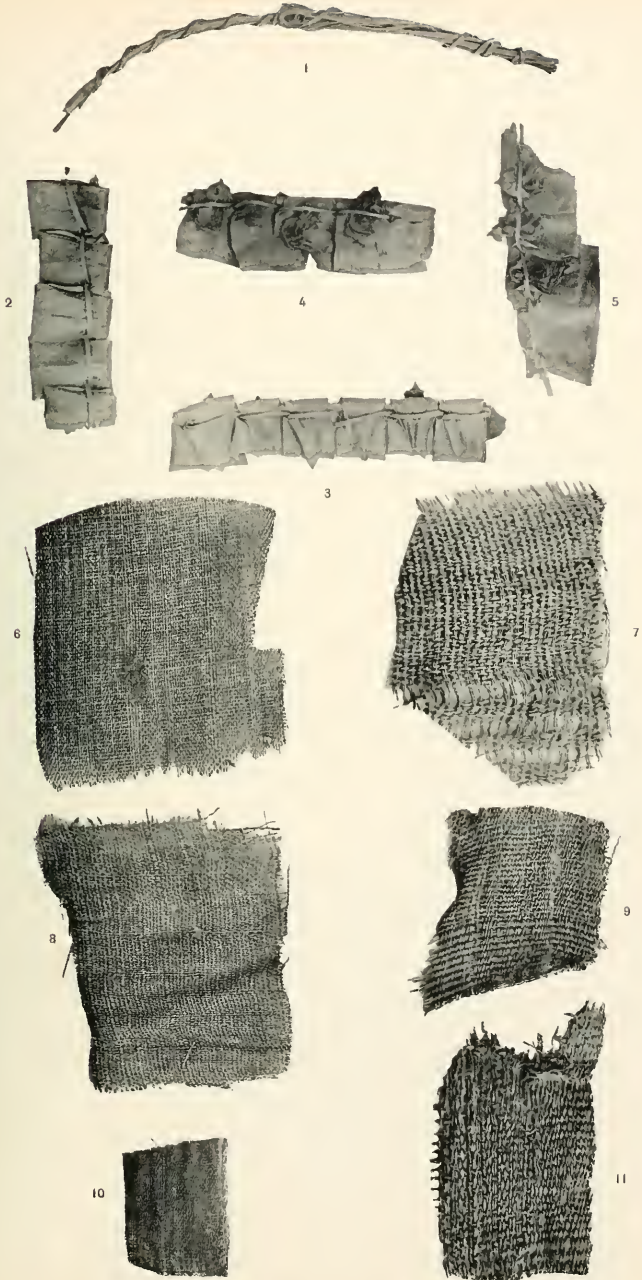 1
2
4
5
3
6
7
8
9
10
11